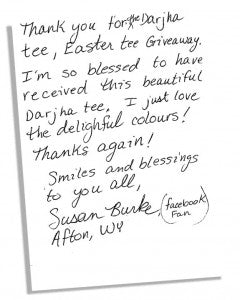 Thank you for the Darjha
tee, Easter tee Giveaway.
I'm so blessed to have
received this beautiful
Darjha tee, I just love
the delighful colours!
Thanks again!
Smiles and blessings
to you all,
Susan Burke, (facebook
Fan)
Afton, WY